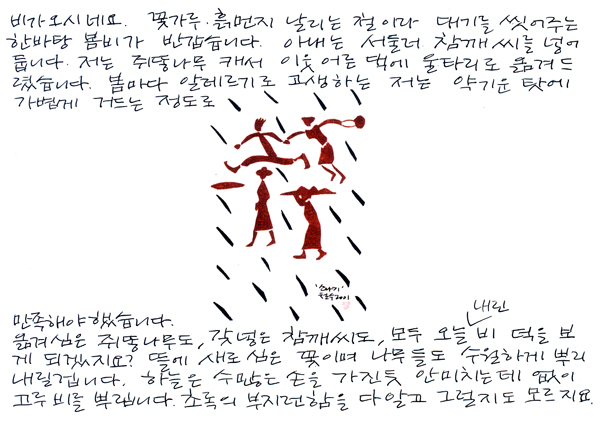 비가 오시네요. 꽃가루·흙먼지 날리는 철이라 대기를 씻어주는
한바탕 봄비가 반갑습니다. 아내는 서둘러 참깨씨를 넣어
둡니다. 저는 쥐똥나무 캐서 이웃 어른 댁에 울타리로 옮겨드
렸습니다. 봄마다 알레르기로 고생하는 저는 약기운 탓에
가볍게 거드는 정도로
'소나기'
2001
만족해야 했습니다.
내린
옮겨심은 쥐똥나무도, 갓넣은 참깨씨도, 모두 오늘 비 덕을 보
게 되겠지요? 뜰에 새로 심은 꽃이며 나무들도 수월하게 뿌리
내릴겁니다. 하늘은 수많은 손을 가진듯 안미치는데 없이
고루 비를 뿌립니다. 초록의 부지런함을 다 알고 그럴지도 모르지요.